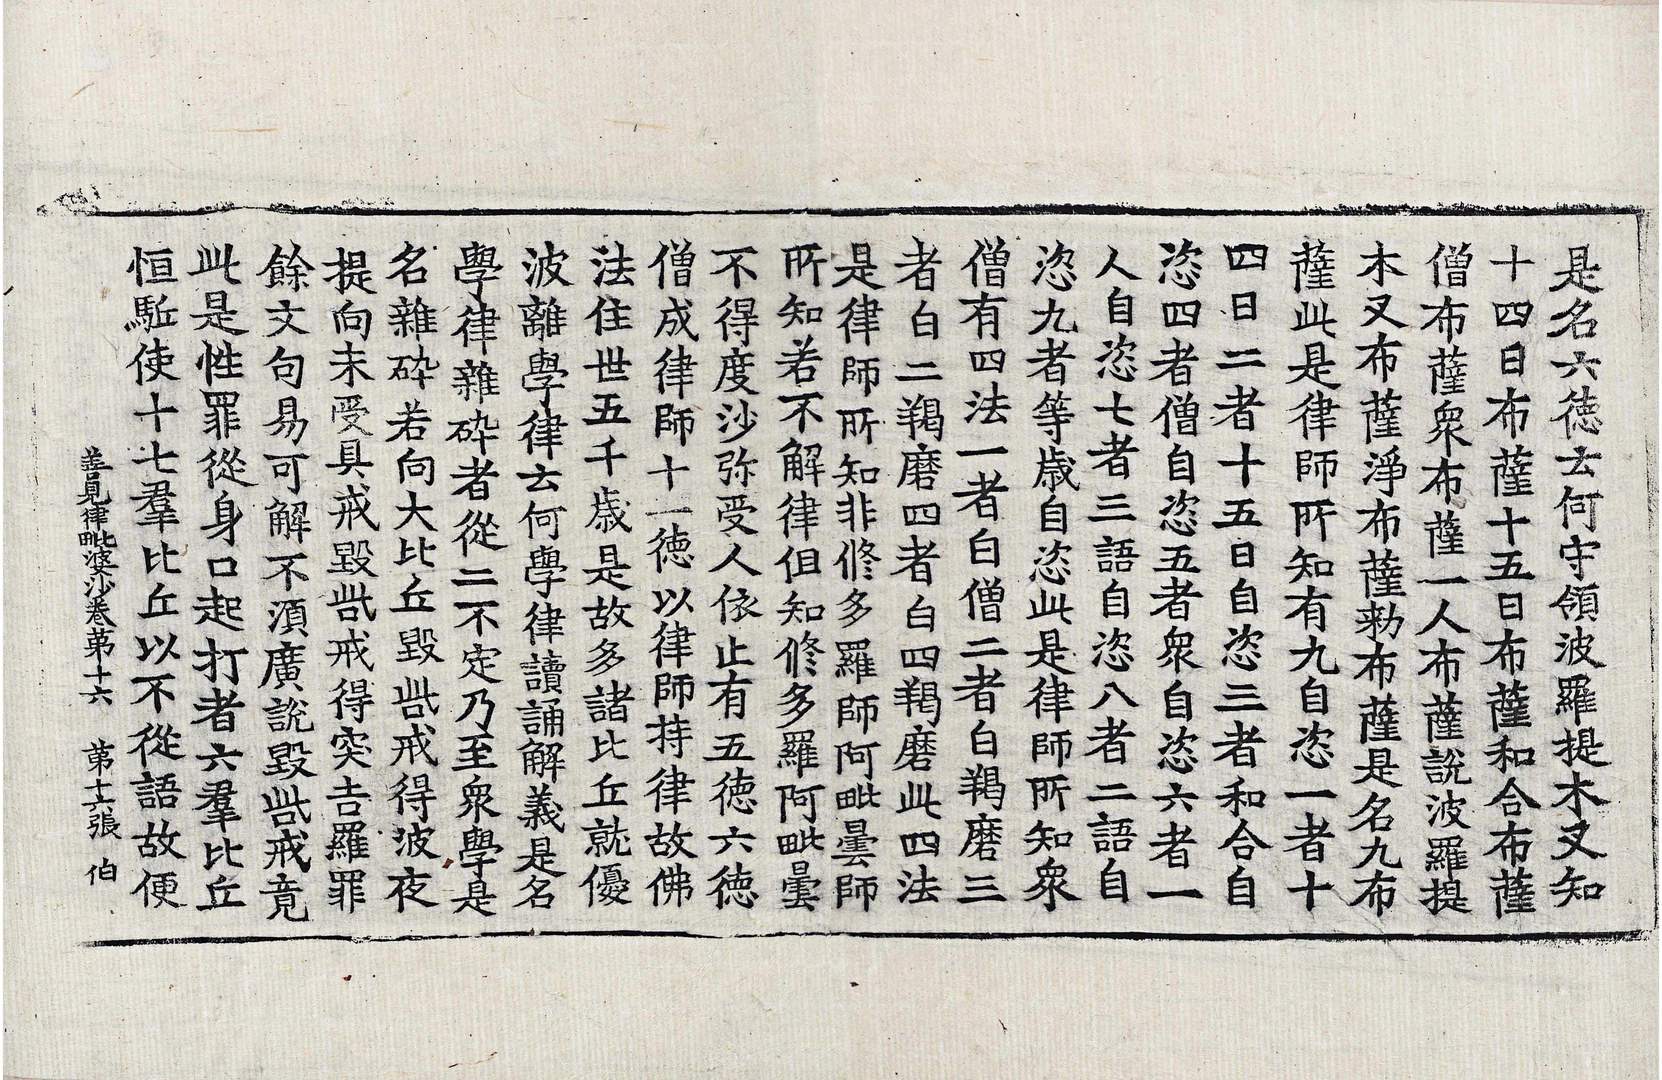 是名六徳云何守領波羅提木叉知
十四日布薩十五日布薩和合布薩
僧布薩衆布薩一人布薩說波羅提
木叉布薩淨布薩勑布薩是名九布
薩此是律師所知有九自恣一者十
四日二者十五日自恣三者和合自
恣四者僧自恣五者衆自恣六者一
人自恣七者三語自恣八者二語自
恣九者等歳自恣此是律師所知衆
僧有四法一者白僧二者白羯磨三
者白二羯磨四者白四羯磨此四法
是律師所知非修多羅師阿毗曇師
所知若不解律但知修多羅阿毗曇
不得度沙弥受人依止有五徳六徳
僧成律師十一徳以律師持律故佛
法住世五千歳是故多諸比丘就優
波離學律云何學律讀誦解義是名
學律雜碎者從二不定乃至衆學是
名雜碎若向大比丘毀呰戒得波夜
提向未受具戒毀呰戒得突吉羅罪
餘文句易可解不湏廣說毀呰戒竟
此是性罪從身口起打者六羣比丘
恒駈使十七羣比丘以不從語故便
善見律毗婆沙卷第十六　第十六張　伯